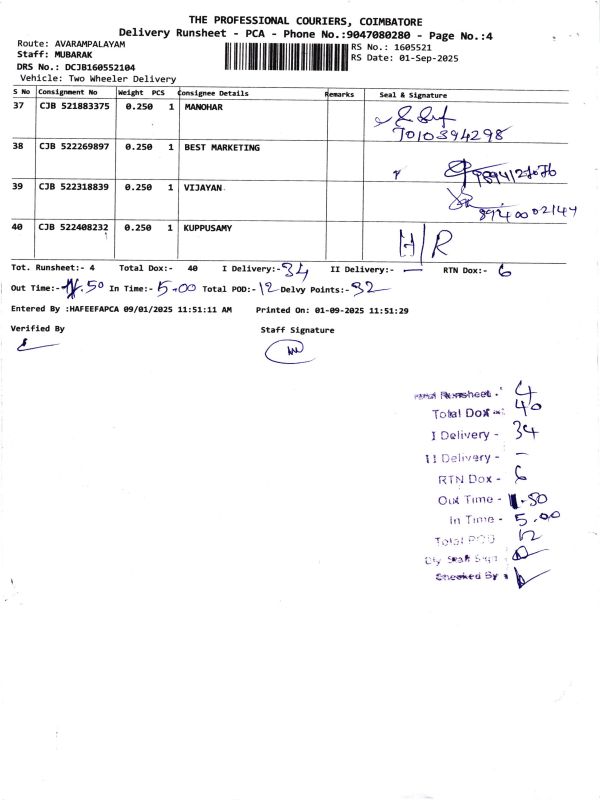 THE PROFESSIONAL COURIERS, COIMBATORE
Delivery Runsheet - PCA - Phone No.:9047080280 - Page No.:4
Route: AVARAMPALAYAM
Staff: MUBARAK
DRS No.: DCJB160552104
Vehicle: Two Wheeler Delivery
RS No.: 1605521
RS Date: 01-Sep-2025
S No Consignment No Weight PCS Consignee Details Remarks Seal & Signature
37 CJB 521883375 0.250 1 MANOHAR
7010394298
38 CJB 522269897 0.250 1 BEST MARKETING
39 CJB 522318839 0.250 1 VIJAYAN
40 CJB 522408232 0.250 1 KUPPUSAMY
H/R
Tot. Runsheet:- 4 Total Dox:- 40 I Delivery:- 34 II Delivery:- — RTN Dox:- 6
Out Time:- 11.50 In Time:- 5.00 Total POD:- 12 Delvy Points:- 32
Entered By :HAFEEFAPCA 09/01/2025 11:51:11 AM Printed On: 01-09-2025 11:51:29
Verified By Staff Signature
Runsheet - 4
Total Dox - 40
I Delivery - 34
II Delivery - –
RTN Dox - 6
Out Time - 11.50
In Time - 5.00
Total POD 12
Dly Staff Sign
Checked By